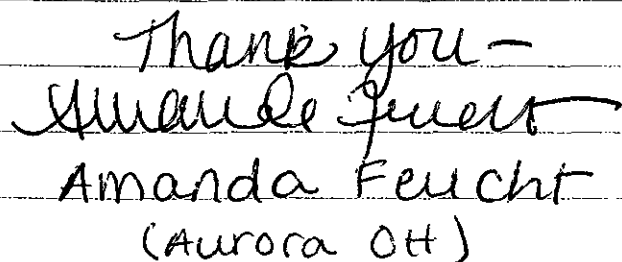 Thank you -
Amanda Feucht
Amanda Feucht
(Aurora OH)